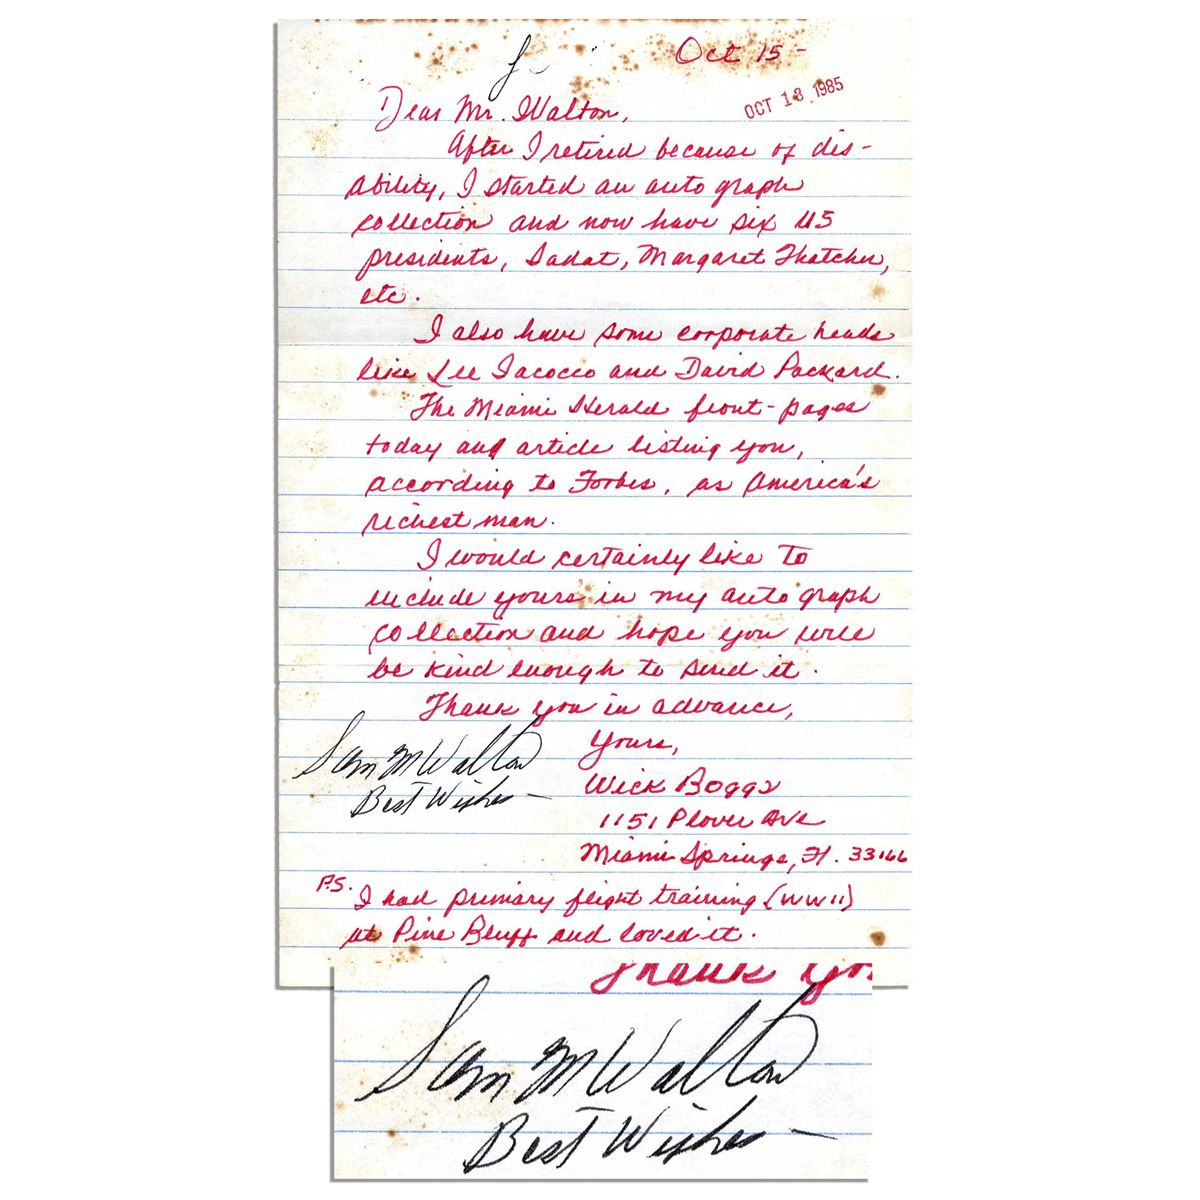 Oct 15-
OCT 18 1985
Dear Mr. Walton,
After I retired because of dis-
ability, I started an auto graph
collection and now have six US
presidents, Sadat, Margaret Thatcher,
etc.
I also have some corporate heads
like Lee Iacocco and David Packard.
The Miami Herald front-pages
today and article listing you,
according to Forbes, as America's
richest man.
I would certainly like to
include yours in my auto graph
collection and hope you will
be kind enough to send it.
Thank you in advance,
Yours,
Sam M Walton
Best Wishes -
Wick Boggs
1151 Plover Ave
Miami Springs, Fl. 33166
P.S. I had primary flight training (WW11)
at Pine Bluff and loved it.
Thank yo
Sam M Walton
Best Wishes -